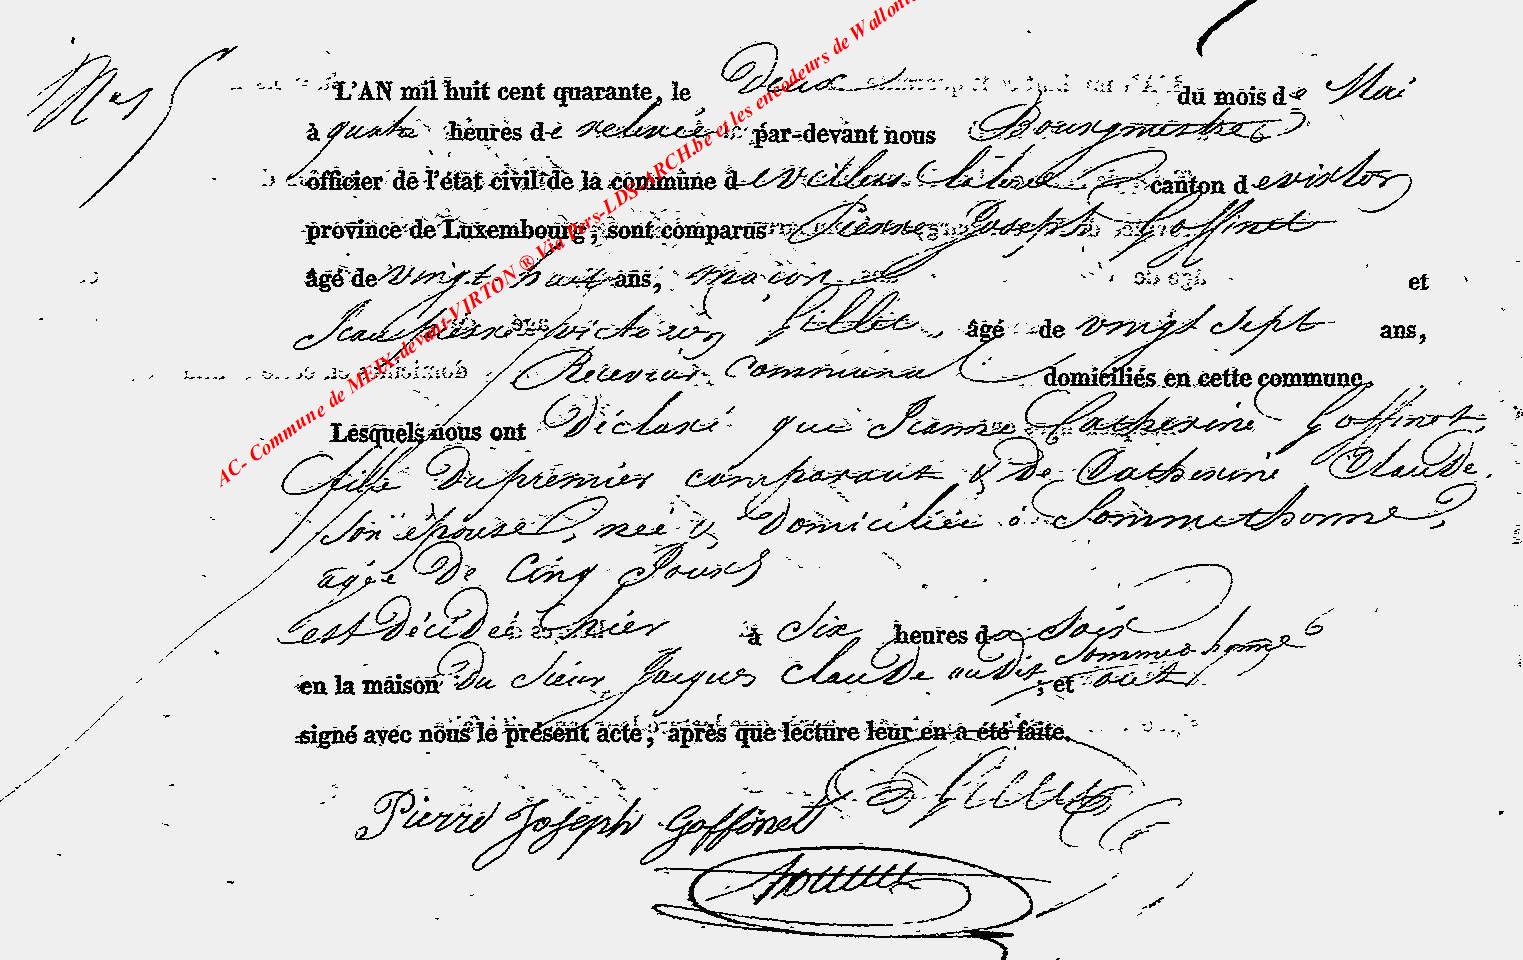 N° 5
L'AN mil huit cent quarante, le Deux du mois de Mai
à quatre heures de relevée par-devant nous Bourgmestre
officier de l'état civil de la commune de Villers la loue canton de virton
province de Luxembourg, sont comparus Pierre Joseph Goffinet
âgé de vingt huit ans, maçon et
Jean Pierre victorin Gillet, âgé de vingt sept ans,
Receveur Communal domiciliés en cette commune.
Lesquels nous ont Déclaré que Jeanne Catherine Goffinet,
fille Du premier comparant & De Catherine Claude
son épouse, née & Domiciliée à Sommethonne,
agée De Cinq Jours
est Décédée hier à Six heures du Soir
en la maison Du Sieur Jacques Claude audit Sommethonne; et ont
signé avec nous le présent acte, après que lecture leur en a été faite.
Pierre Joseph Goffinet Gillet
AC- Commune de MEIX-devant-VIRTON ® Via Fars-LDS-ARCH.be et les encodeurs de Wallonie